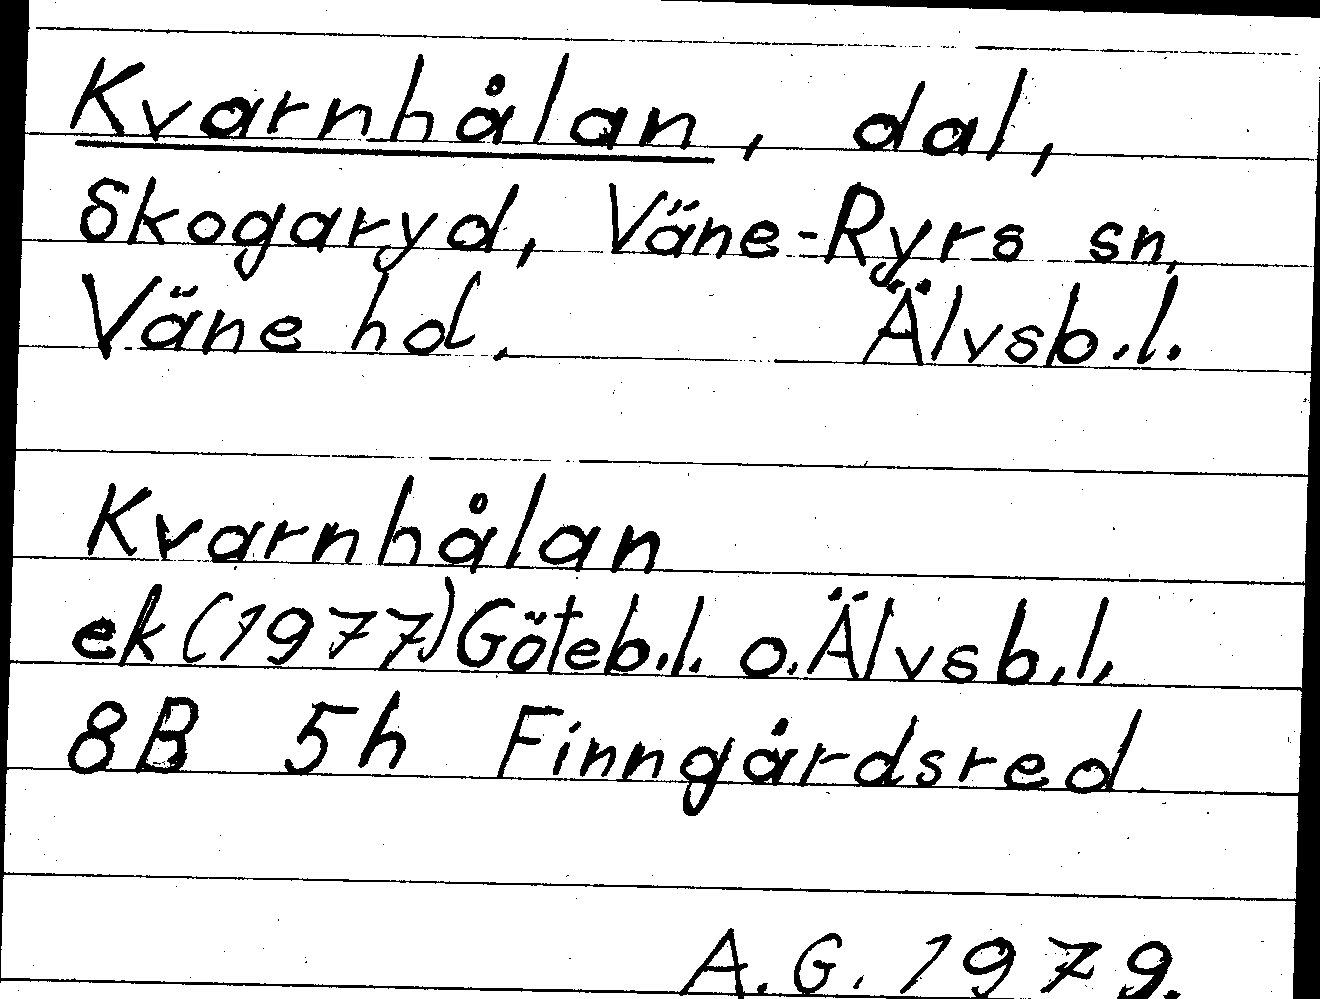 Kvarnhålan, dal,
Skogaryd, Väne-Ryrs sn,
Väne hd. Älvsb.l.
Kvarnhålan
ek (1977) Göteb.l. o. Älvsb.l.
8B 5h Finngårdsred
A.G. 1979.